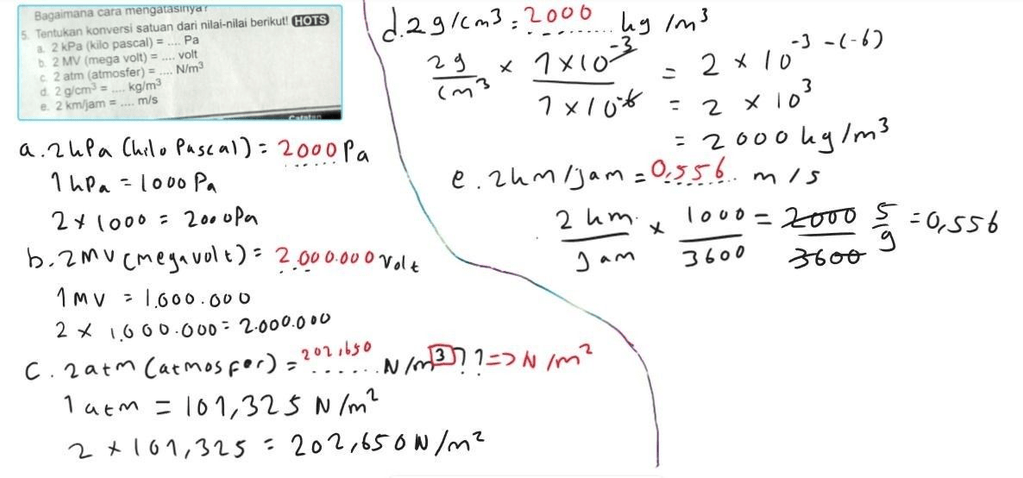 Bagaimana cara mengatasinya?
5. Tentukan konversi satuan dari nilai-nilai berikut! HOTS
a. 2 kPa (kilo pascal) = .... Pa
b. 2 MV (mega volt) = .... volt
c. 2 atm (atmosfer) = .... N/m³
d. 2 g/cm³ = .... kg/m³
e. 2 km/jam = .... m/s
Catatan
a. 2 kPa (kilo Pascal) = 2000 Pa
1 kPa = 1000 Pa
2 × 1000 = 2000 Pa
b. 2 MV (megavolt) = 2.000.000 Volt
1 MV = 1.000.000
2 × 1.000.000 = 2.000.000
c. 2 atm (atmosfer) = 202,650 N/m³ ?? => N/m²
1 atm = 101,325 N/m²
2 × 101,325 = 202,650 N/m²
d. 2 g/cm³ = 2000 kg/m³
2 g/cm³ × 1×10⁻³/1×10⁻⁶ = 2 × 10⁻³ ⁻⁽⁻⁶⁾
= 2 × 10³
= 2000 kg/m³
e. 2 km/jam = 0,556 m/s
2 km/Jam × 1000/3600 = 2000/3600 5/9 = 0,556